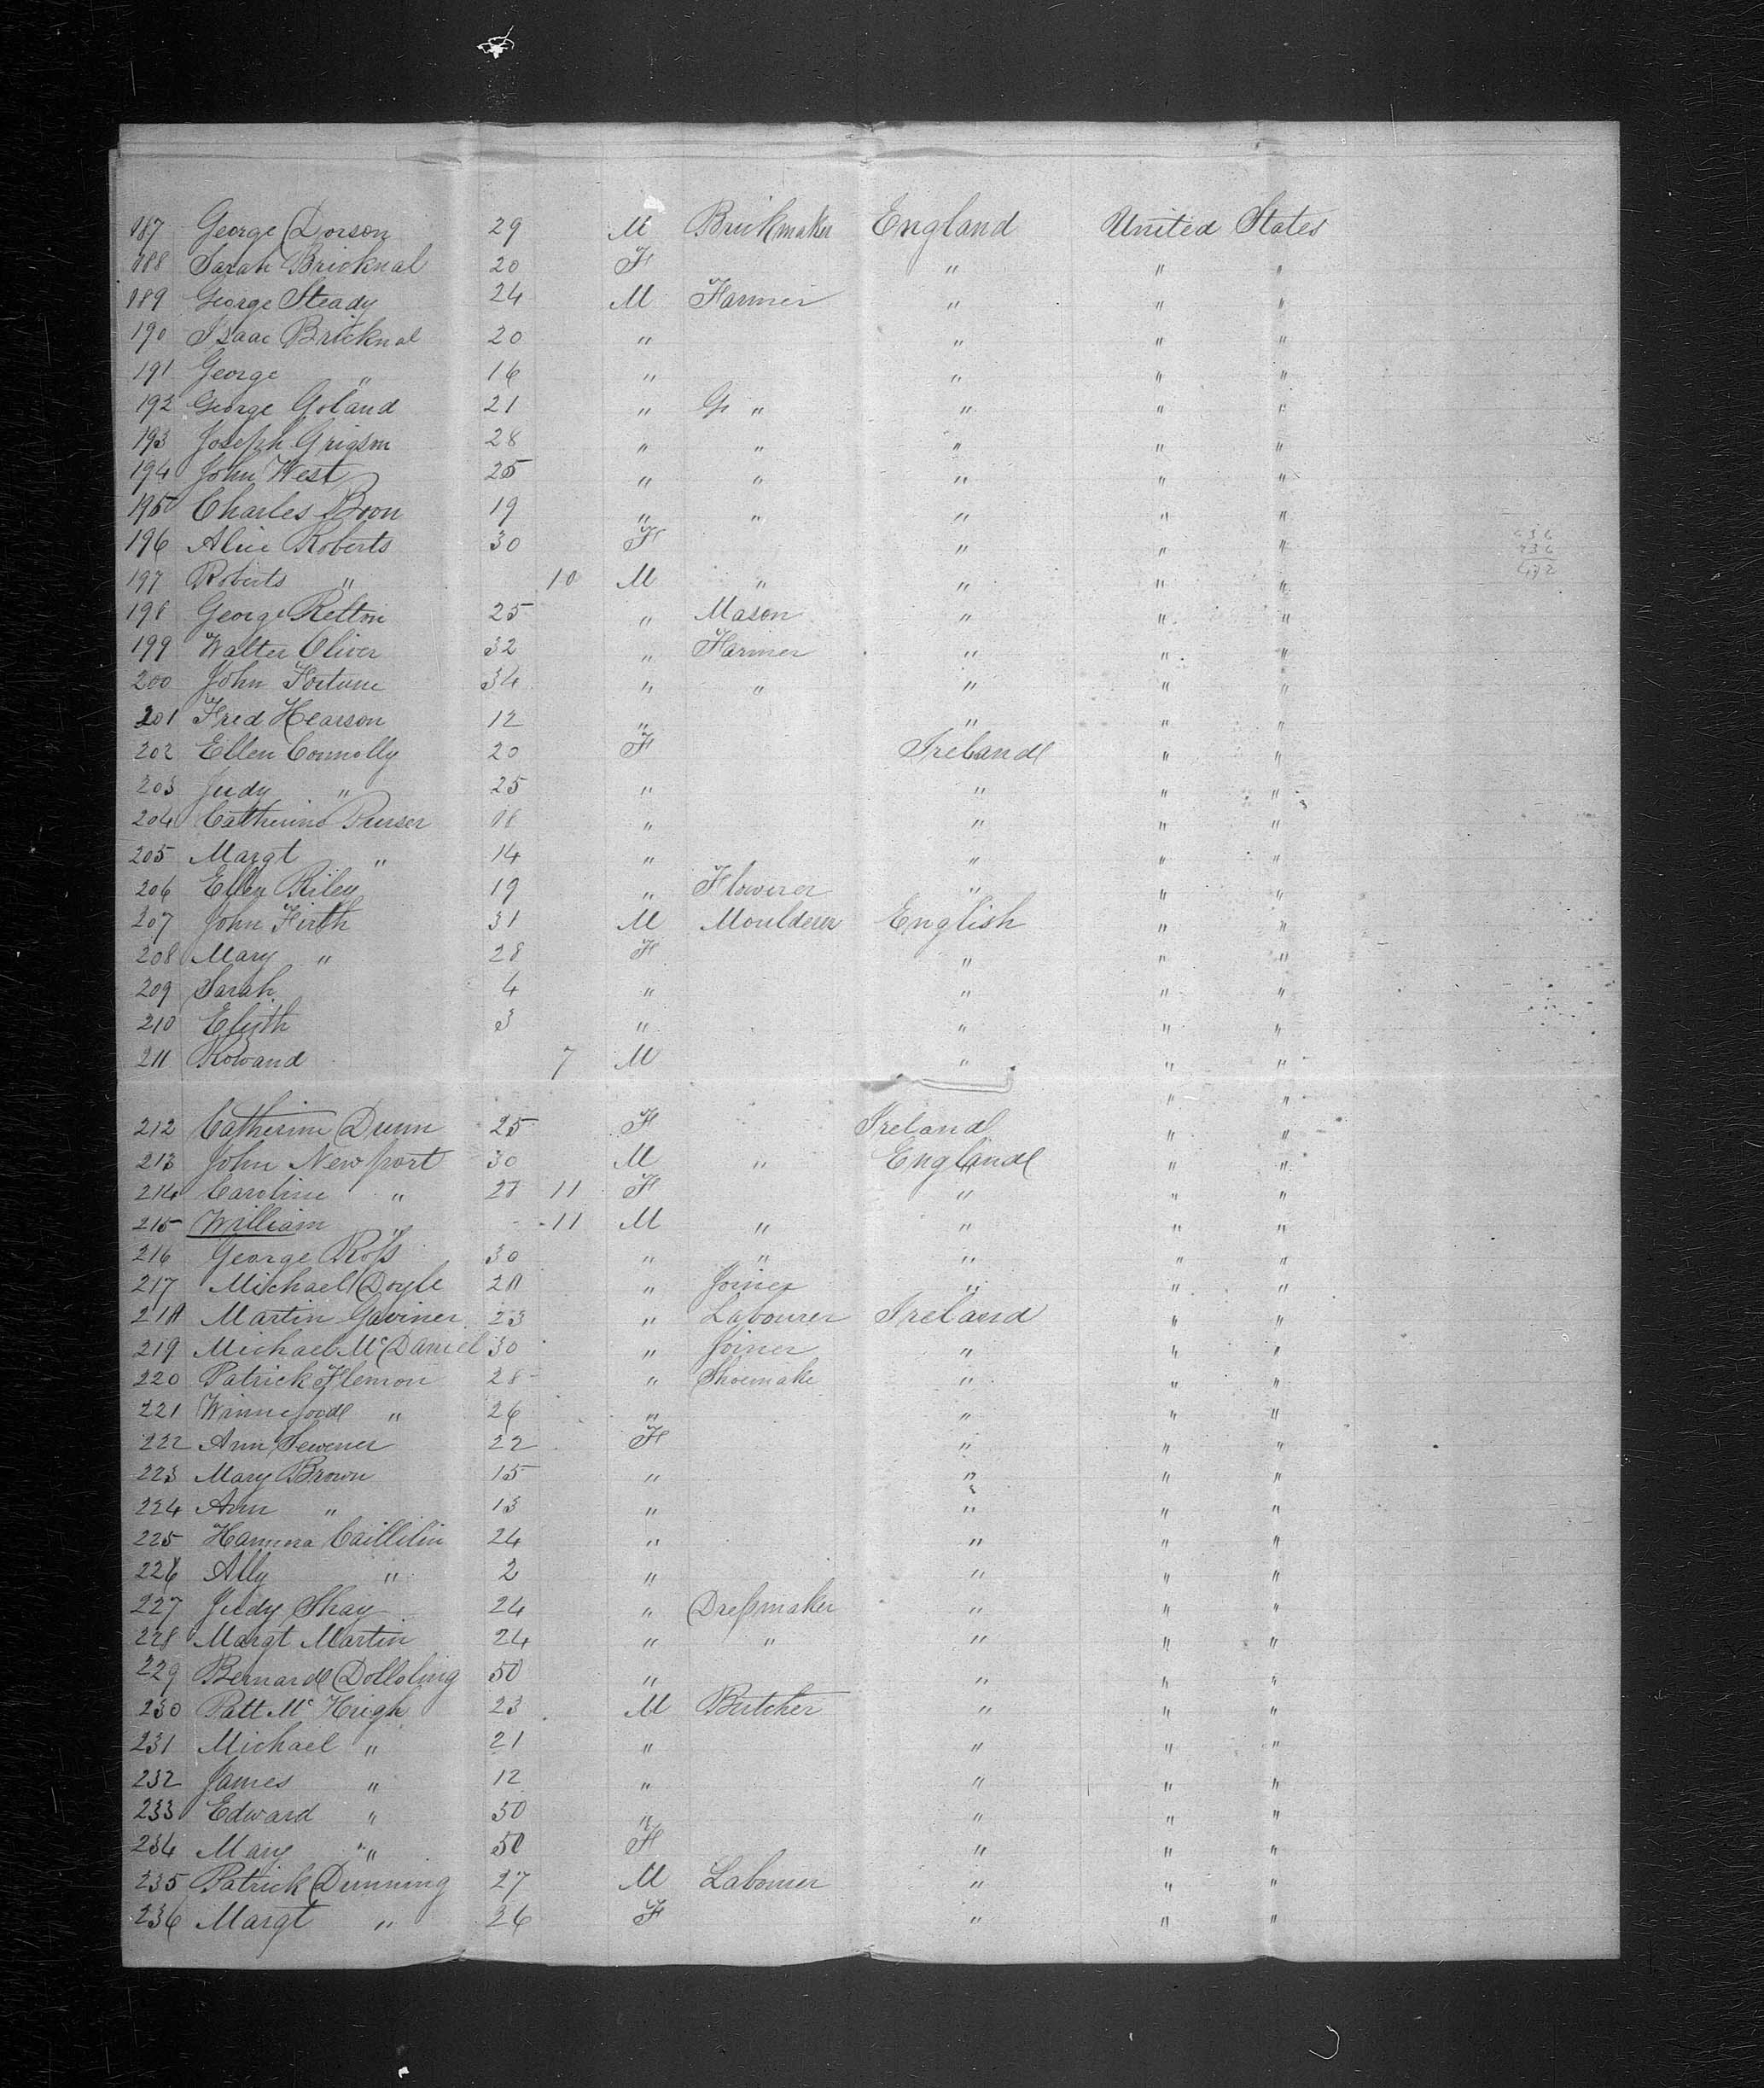 187 George Dorson 29 M Brickmaker England United States
188 Sarah Bricknal 20 F " " "
189 George Steady 24 M Farmer " " "
190 Isaac Bricknal 20 " " " "
191 George " 16 " " " "
192 George Goland 21 " G " " " "
193 Joseph Grigson 28 " " " " "
194 John West 25 " " " " "
195 Charles Boon 19 " " " " "
196 Alice Roberts 30 F " " "
197 Roberts " 10 M " " " "
198 George Relton 25 " Mason " " "
199 Walter Oliver 32 " Farmer " " "
200 John Fortune 34 " " " " "
201 Fred Hearson 12 " " " "
202 Ellen Connolly 20 F Ireland " "
203 Judy " 25 " " " "
204 Catherine Purser 18 " " " "
205 Margt " 14 " " " "
206 Ellen Riley 19 " Flowerer " " "
207 John Firth 31 M Moulderer English " "
208 Mary " 28 F " " "
209 Sarah 4 " " " "
210 Elizth 3 " " " "
211 Rowand 7 M " " "
" "
212 Catherine Dunn 25 F Ireland " "
213 John Newport 30 M " England " "
214 Caroline " 28 11 F " " "
215 William " 11 M " " " "
216 George Ross 30 " " " " "
217 Michael Doyle 28 " Joiner " " "
218 Martin Gaviner 23 " Labourer Ireland " "
219 Michael McDaniel 30 " Joiner " " "
220 Patrick Flemon 28 " Shoemake " " "
221 Winnefoode " 26 " " " "
222 Ann Sewener 22 F " " "
223 Mary Brown 15 " " " "
224 Ann " 13 " " " "
225 Hannna Caillilin 24 " " " "
226 Ally " 2 " " " "
227 Judy Shay 24 " Dressmaker " " "
228 Margt Martin 24 " " " " "
229 Bernard Dolloling 50 " " " "
230 Patt McHugh 23 M Butcher " " "
231 Michael " 21 " " " "
232 James " 12 " " " "
233 Edward " 50 " " " "
234 Mary " 50 F " " "
235 Patrick Dunning 27 M Labourer " " "
236 Margt " 26 F " " "